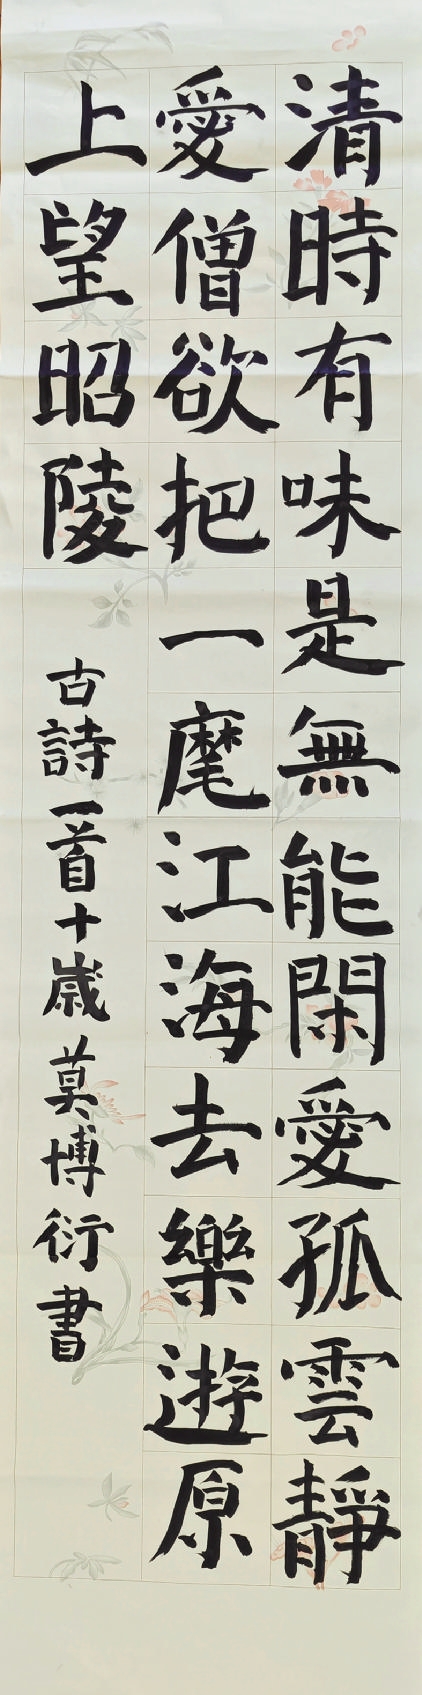 清時有味是無能閑愛孤雲靜
愛僧欲把一麾江海去樂遊原
上望昭陵
古詩一首十歲莫博衍書